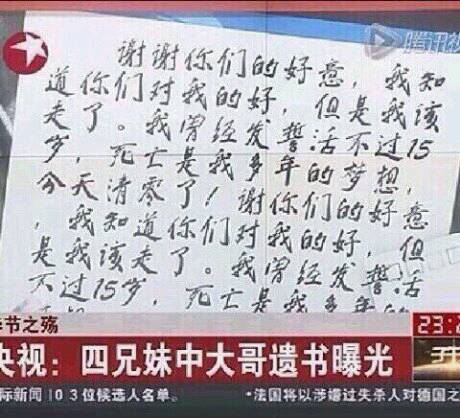 腾讯视
谢谢你们的好意，我知
道你们对我的好，但是我该
走了。我曾经发誓活不过15
岁，死亡是我多年的梦想，
今天清零了！谢你们的好意
，我知道你们对我的好，但
是我该走了。我曾经发誓活
不过15岁，死亡是我多年的
节之殇
央视：四兄妹中大哥遗书曝光
23:2
际新闻 ｜0 3 位候选人名单。
*法国将以涉嫌过失杀人对德国之